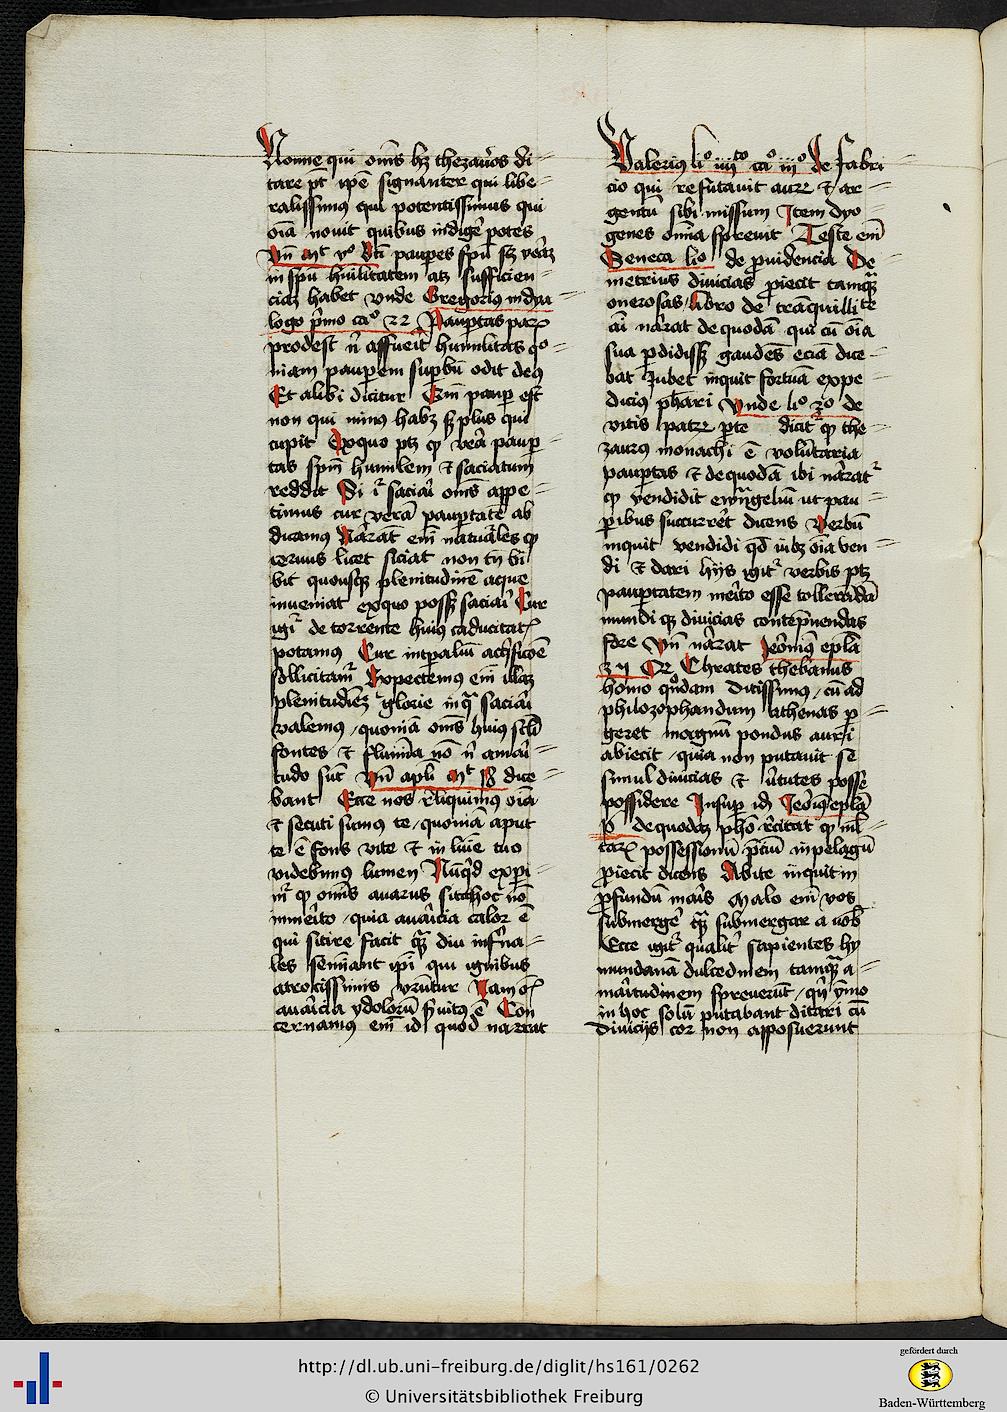 Nonne qui om̄s hꝫ thezau̾os di-
tare pt̄ ip̄e signanter qui libe-
ralissimꝰ qui potentissimus qui
oīa nouit quibus indige̾ potes
Vn̄ Mt vo Bt̄i paupes spū sꝫ ve̾aꝫ
in spū hūilitatem atꝫ sufficien-
ciaꝫ habet vnde Gregoriꝰ in dya
logo p̾mo cao 22 Paup̲tas par
prodest n̄ affuerit humilitas qo-
niam paup̲em sup̲bū odit deꝰ
Et alibi dicitur Em̄ paup̲ est
non qui minꝰ habꝫ sꝫ plus qui
cupit Exquo ptꝫ qꝫ ve̾a paup̲
tas sp̄m humilem et saciatum
reddit Si iḡ saciāi om̄s appe-
timus cur verā paup̲tatē ab
dicamꝰ Na̾rat em̄ natu̾ales qꝫ
ceruus licet siciat non tn̄ bi
bit quousqꝫ plenitudinē aque
inueniat exquo possꝫ saciai̾ Cur
igr̄ de torrente huiꝰ caducitat
potamꝰ Cur int̾paliū artificōe
sollicitam̾ Expectemꝰ em̄ illaꝫ
plenitudiēꝫ glorie inq̾ saciāi
valemꝰ quoniā om̄s huiꝰ scl̄i
fontes et flum̄a nō n̄ ama̾i-
tudo sūt Vn̄ apl̄i Mt 18 dice
bant Ecce nos re̾liquimꝰ oīa
et secuti sumꝰ te quoniā aput
te ē fons vite et in lum̄e tuo
videbimꝰ lumen Nūqd̾ expi̲-
m̾ qꝫ om̄s auarus sitit hoc nō
imme̾ito quia aua̾icia calor ē
qui sitire facit qꝫ̄ diu inf̾na-
les semiant ip̄i qui ignibus
atrocissimis vruntur Nam
aua̾icia ydolorū s̾uitꝰ ē Con
cernamꝰ em̄ id quod narrat
Valeriꝰ lio iiijto cao iijo de fabri
cio qui refutauit aurꝫ et ar-
gentū sibi missum Item dyo
genes om̄ia spreuit Teste em̄
Seneca lio de p̲uidencia De-
metrius diuicias p̲iecit tamqꝫ̄
onerosas libro de tranquillite
ai̾ na̾rat de quodā qui cū oīa
sua p̲didissꝫ gaudēs eciā dice-
bat Jubet inquit fortuā expe
dicius phāri Vnde lio 2o de
vitis patꝝ p̲te dicit̾ qꝫ the-
zaurꝰ monachi ē volu̾taria
paup̲tas et de quodā ibi na̾rat̾
qꝫ vendidit ewāgeliū ut pau-
p̲ibus succurre̾t dicens Verbū
inquit vendidi qd̄ iubꝫ oīa ven-
di et dari hijs igit̾ verbis ptꝫ
paup̲tatem me̾ito esse tollerādā
mundiqꝫ diuicias contēpnendas
fore Vn̄ na̾rat Jero̾imꝰ epl̄a
Chrates thebanus
homo qn̄dam ditissimꝰ cū ad
philozophandum Athenas p̲-
geret magnū pondus auri
abiecit quia non putauit se
simul diuicias et v̾tutes posse
possidere Insup̲ id̄ Jero̾iꝰ epl̄a
de quodaꝫ pho̾ re̾citat qꝫ ml̄-
tarꝫ possessionū p̾ciū in pelagū
p̲iecit dicens Abite inquit in
p̲fundū ma̾is Malo em̄ vos
submerge̾ qꝫ̄ submergar a uob̄
Ecce igit̾ qualit̾ sapientes hꝰ
mundanā dulcedinem tamqꝫ̄ a-
ma̾itudinem spreuerūt qn̄ ymo
in hoc solū putabant ditari cū
diuicijs cor non apposuerunt
http://dl.ub.uni-freiburg.de/diglit/hs161/0262
© Universitätsbibliothek Freiburg
gefördert durch
Baden-Württemberg